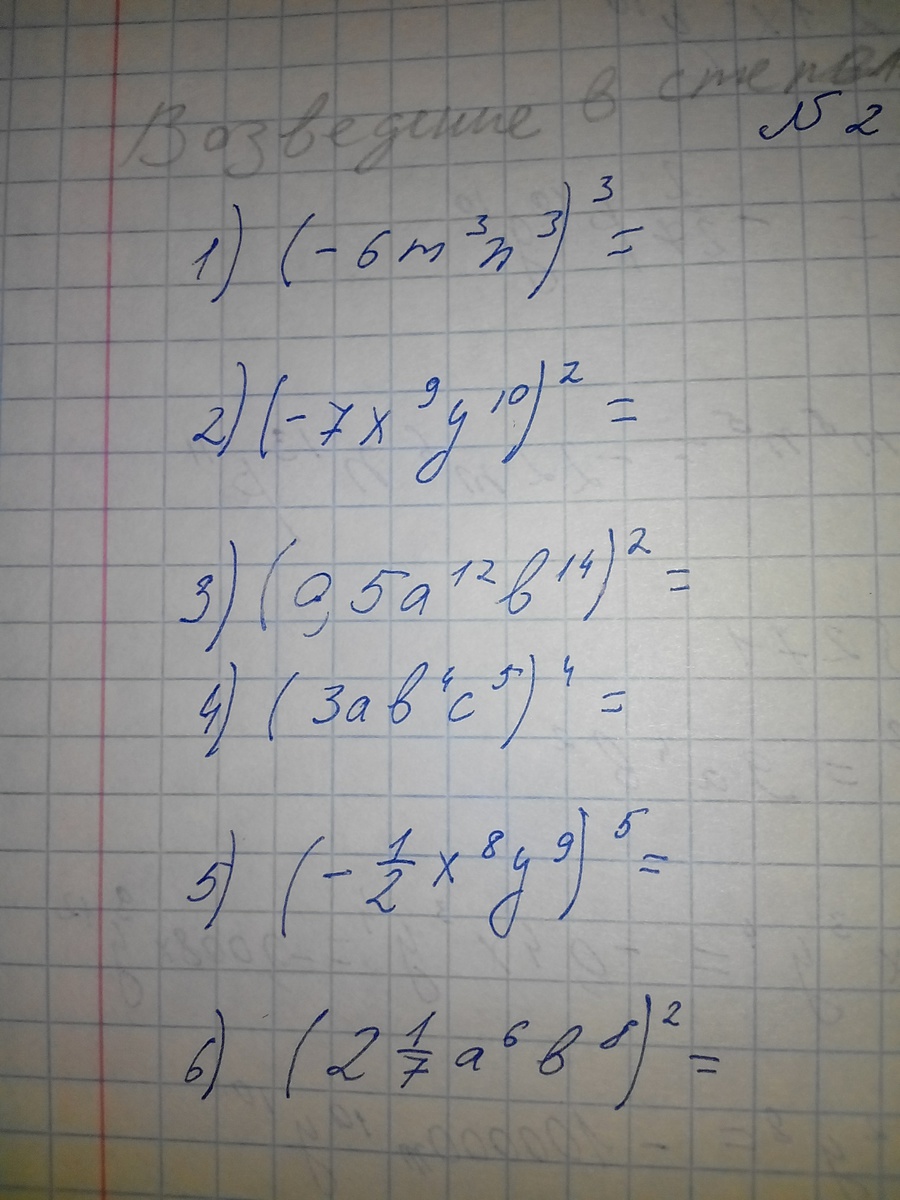 Возведение в степен
№ 2
1) (-6m³n³)³ =
2) (-7x⁹y¹⁰)² =
3) (0,5a¹²b¹⁴)² =
4) (3ab⁴c⁵)⁴ =
5) (-1/2 x⁸y⁹)⁵ =
6) (2 1/7 a⁶b⁸)² =